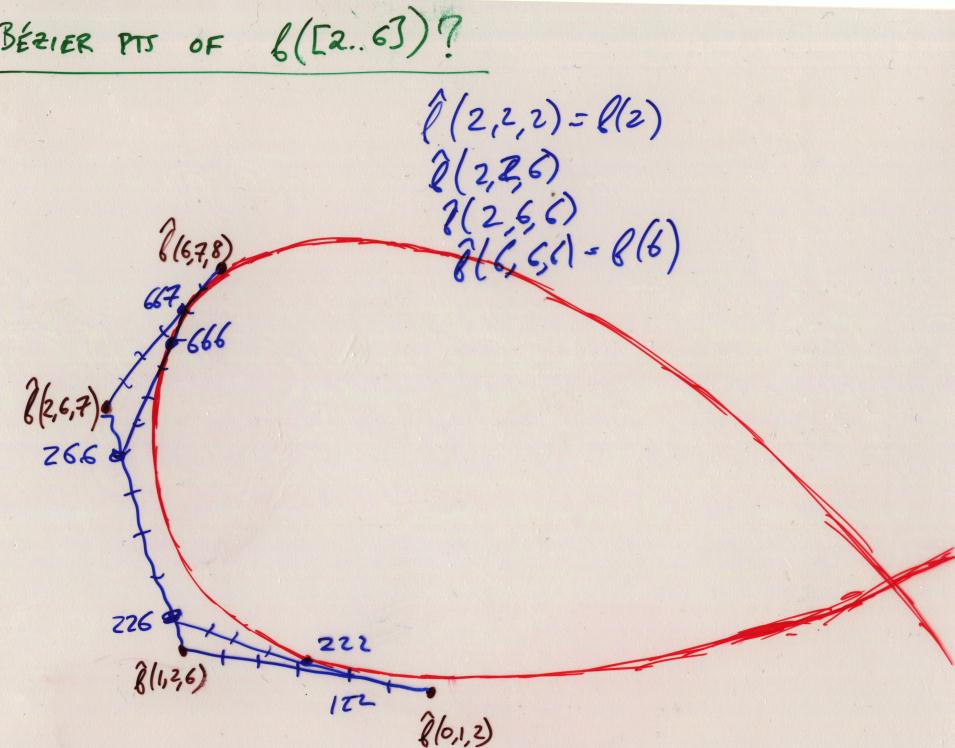 BÉZIER PTS OF b([2..6])?
b̂(2,2,2) = b(2)
b̂(2,2,6)
b̂(2,6,6)
b̂(6,6,6) = b(6)
b̂(6,7,8)
667
666
b̂(2,6,7)
266
226
222
b̂(1,2,6)
122
b̂(0,1,2)